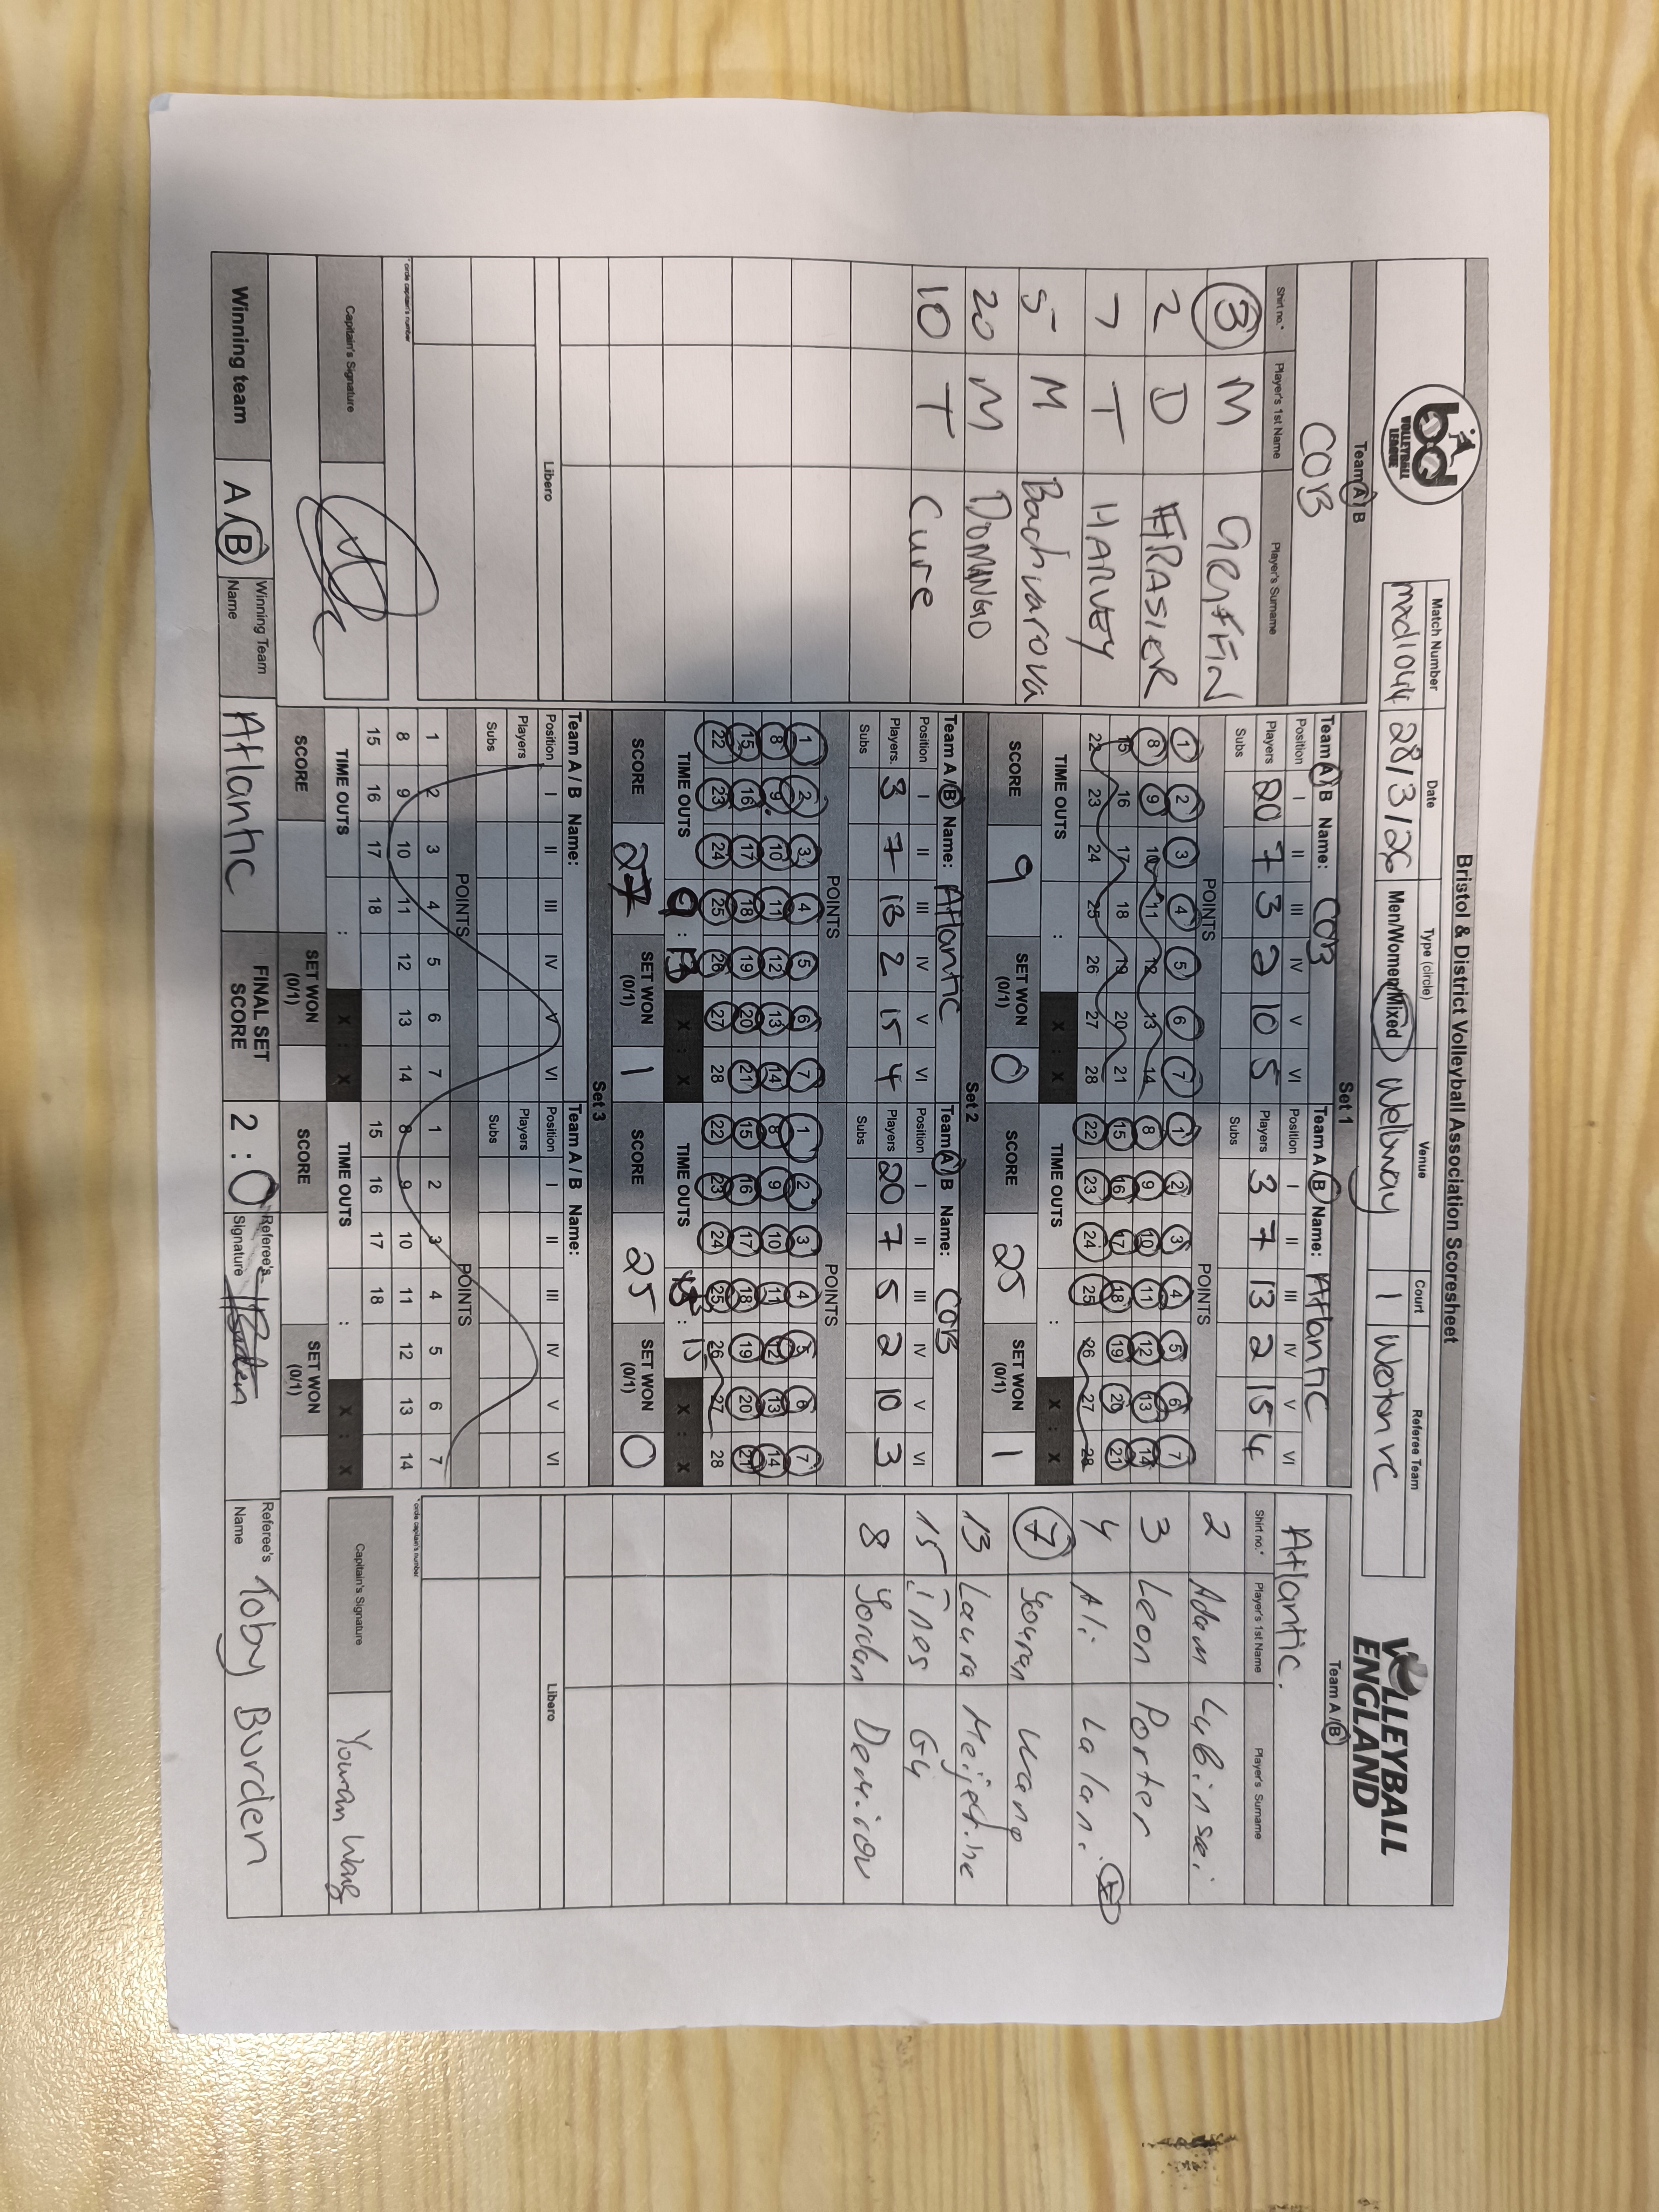 Bristol & District Volleyball Association Scoresheet
bd VOLLEYBALL LEAGUE
Match Number Date Type (circle) Venue Court Referee Team
mxd1044 28/3/26 Men/Women/Mixed Wellsway 1 Weston VC
VOLLEYBALL ENGLAND
Team A / B
COB
Shirt no.* Player's 1st Name Player's Surname
3 M GRIFFIN
2 D FRASIER
7 T HARVEY
5 M Bachvarova
20 M DOMANGO
10 T Cure
Libero
* circle captain's number
Captain's Signature
Set 1
Team A / B Name: COB
Position I II III IV V VI
Players 20 7 3 2 10 5
Subs
POINTS
1 2 3 4 5 6 7
8 9 10 11 12 13 14
15 16 17 18 19 20 21
22 23 24 25 26 27 28
TIME OUTS : X : X
SCORE 9 SET WON (0/1) 0
Team A / B Name: Atlantic
Position I II III IV V VI
Players 3 7 13 2 15 4
Subs
POINTS
1 2 3 4 5 6 7
8 9 10 11 12 13 14
15 16 17 18 19 20 21
22 23 24 25 26 27 28
TIME OUTS : X : X
SCORE 25 SET WON (0/1) 1
Set 2
Team A / B Name: Atlantic
Position I II III IV V VI
Players. 3 7 13 2 15 4
Subs
POINTS
1 2 3 4 5 6 7
8 9 10 11 12 13 14
15 16 17 18 19 20 21
22 23 24 25 26 27 28
TIME OUTS : X : X
SCORE 27 SET WON (0/1) 1
Team A / B Name: COB
Position I II III IV V VI
Players 20 7 5 2 10 3
Subs
POINTS
1 2 3 4 5 6 7
8 9 10 11 12 13 14
15 16 17 18 19 20 21
22 23 24 25 26 27 28
TIME OUTS : 15 X : X
SCORE 25 SET WON (0/1) 0
Set 3
Team A / B Name:
Position I II III IV V VI
Players
Subs
POINTS
1 2 3 4 5 6 7
8 9 10 11 12 13 14
15 16 17 18
TIME OUTS : X : X
SCORE SET WON (0/1)
Team A / B Name:
Position I II III IV V VI
Players
Subs
POINTS
1 2 3 4 5 6 7
8 9 10 11 12 13 14
15 16 17 18
TIME OUTS : X : X
SCORE SET WON (0/1)
Team A / B
Atlantic.
Shirt no.* Player's 1st Name Player's Surname
2 Adam
3 Leon Porter
4 Ali Lalani
7 Youran Wang
13 Laura Meijetine
15 Ines Gy
8 Yordan
Libero
* circle captain's number
Captain's Signature Youran Wang
Winning team A / B Winning Team Name Atlantic FINAL SET SCORE 2 : 0 Referee's Signature Referee's Name Toby Burden